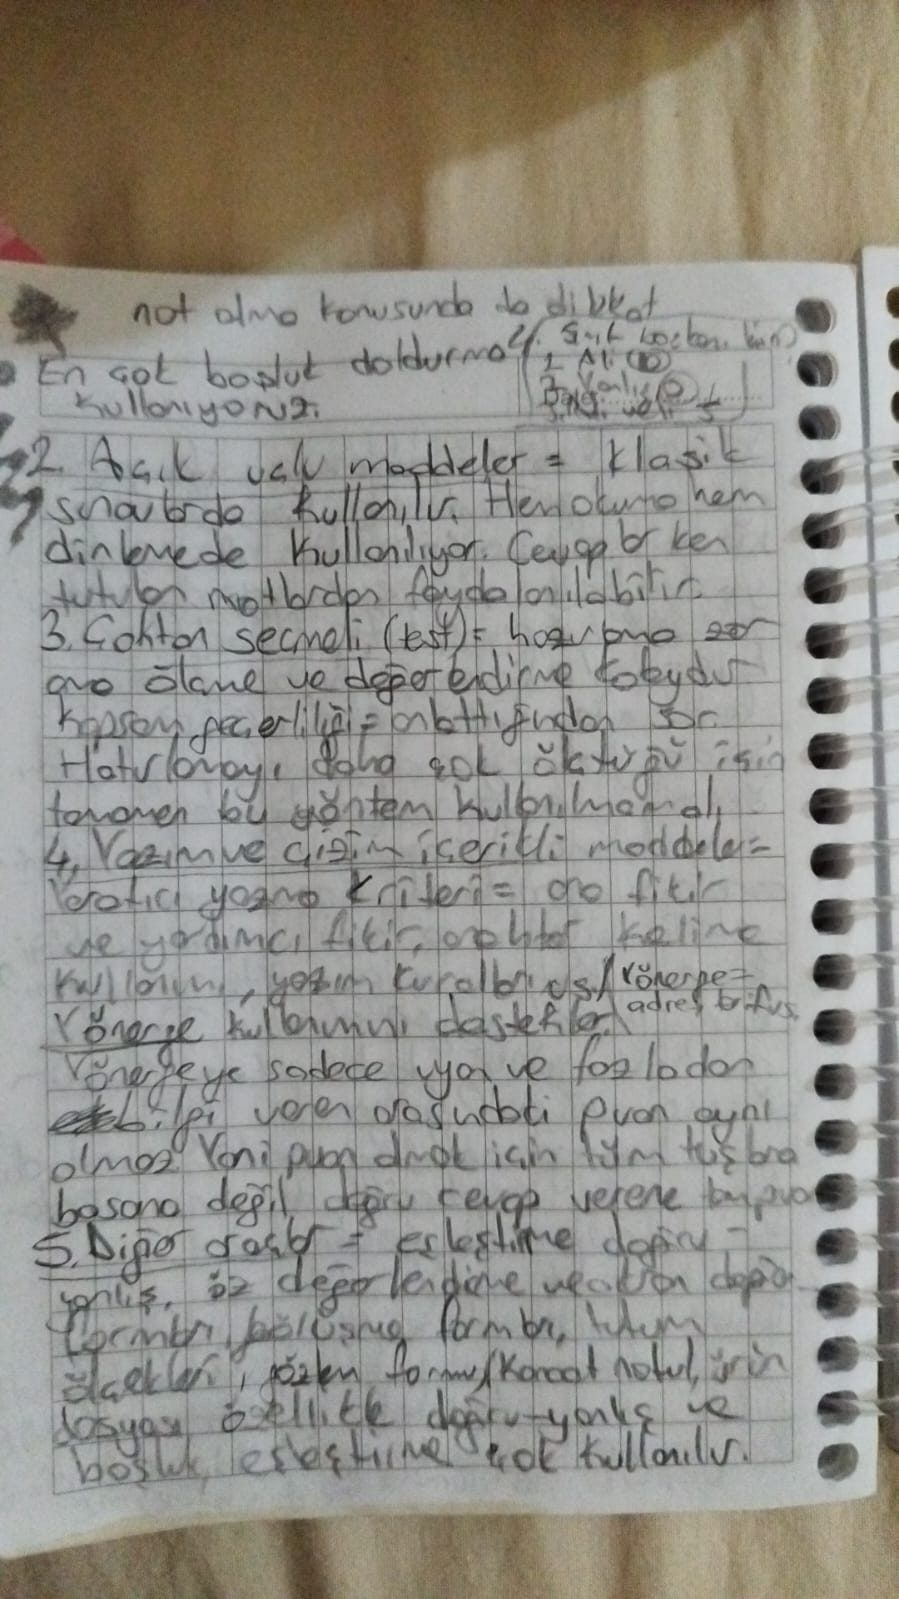 not alma konusunda da dikkat
En çok boşluk doldurma
kullanıyoruz.
2. Açık uçlu maddeler = klasik
sınavlarda kullanılır. Hem okuma hem
dinlemede kullanılıyor. Cevaplarken
tutulan notlardan faydalanılabilir.
3. Çoktan seçmeli (test) = hazırlama zor
ama ölçme ve değerlendirme kolaydır
kapsam geçerliliği = anlattığından sor
Hatırlamayı daha çok ölçtüğü için
tamamen bu yöntem kullanılmamalı
4. Yazım ve çizim içerikli maddeler =
Yaratıcı yazma kriteri = ana fikir
ve yardımcı fikir, anahtar kelime
kullanımı, yazım kuralları vs. / Yönerge =
adres tarifi vs.
Yönerge kullanımını destekler.
Yönergeye sadece uyan ve fazladan
bilgi veren arasındaki puan aynı
olmaz. Yani puan almak için tüm tuşlara
basana değil doğru cevap verene
5. Diğer araçlar = eşleştirme doğru -
yanlış, öz değerlendirme ve akran
formları, formları, tutum
ölçekleri, gözlem formu / kanaat notu, ürün
dosyası özellikle doğru-yanlış ve
boşluk, eşleştirme çok kullanılır.